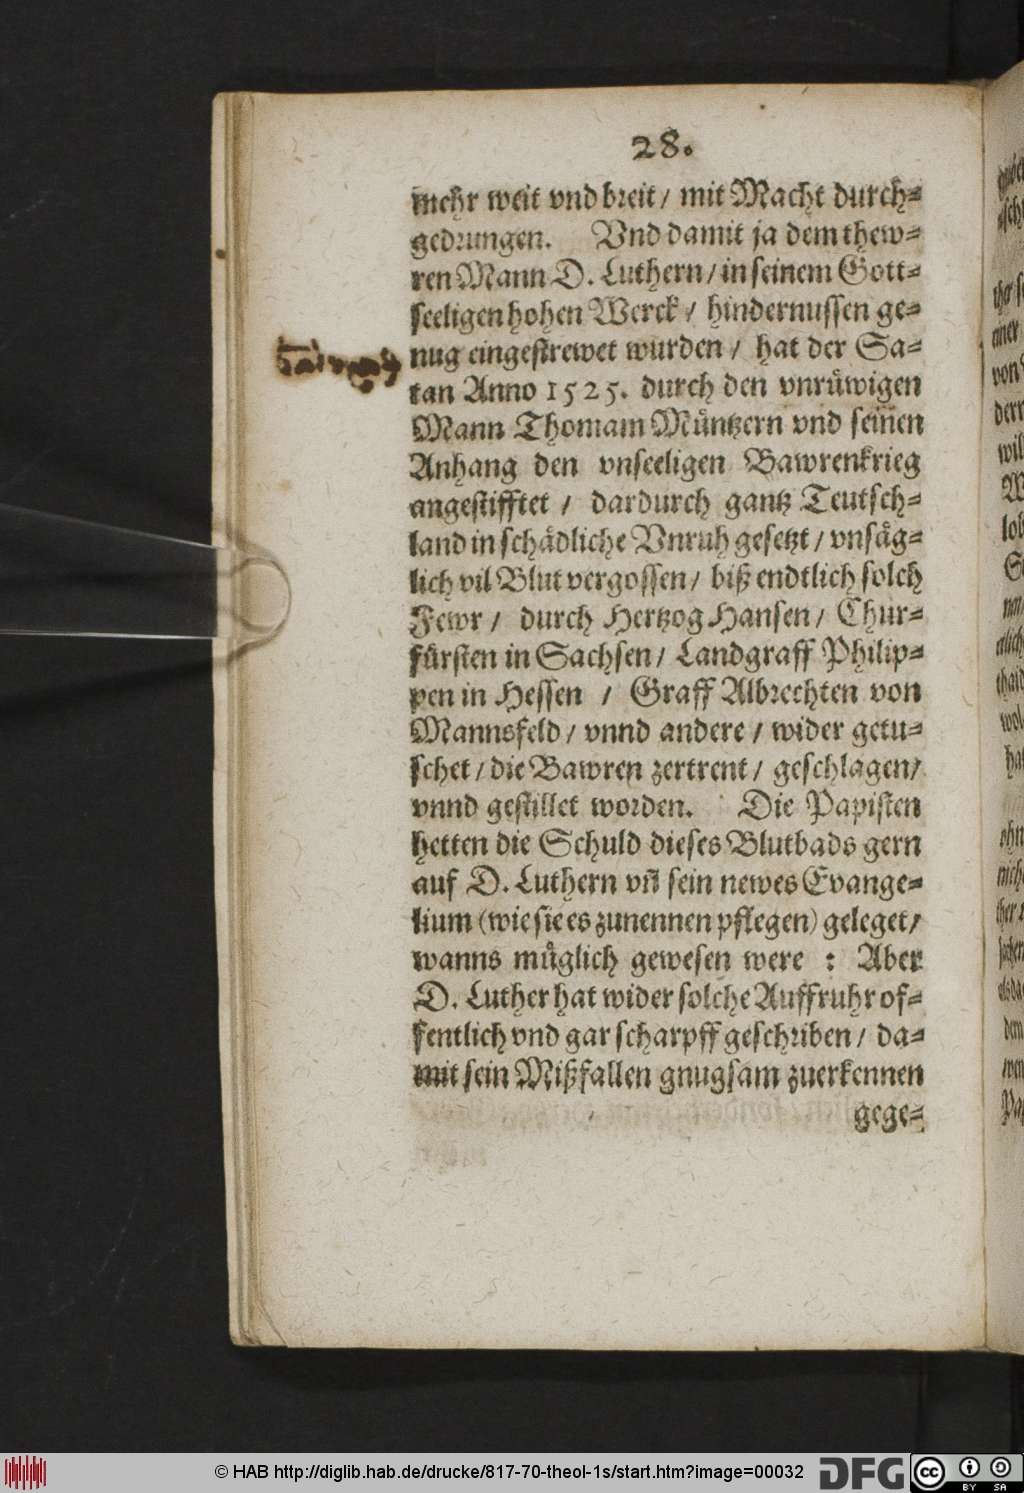 28.
mehr weit vnd breit / mit Macht durch⸗
gedrungen. Vnd damit ja dem thew⸗
ren Mann D. Luthern / in seinem Gott⸗
seeligen hohen Werck / hindernussen ge⸗
nug eingestrewet wurden / hat der Sa⸗
tan Anno 1525. durch den vnruͤwigen
Mann Thomam Muͤntzern vnd seinen
Anhang den vnseeligen Bawrenkrieg
angestifftet / dardurch gantz Teutsch⸗
land in schaͤdliche Vnruh gesetzt / vnsaͤg⸗
lich vil Blut vergossen / biß endtlich solch
Fewr / durch Hertzog Hansen / Chur⸗
fuͤrsten in Sachsen / Landgraff Philip⸗
pen in Hessen / Graff Albrechten von
Mannsfeld / vnnd andere / wider getu⸗
schet / die Bawren zertrent / geschlagen /
vnnd gestillet worden. Die Papisten
hetten die Schuld dieses Blutbads gern
auf D. Luthern vñ sein newes Evange⸗
lium (wie sie es zunennen pflegen) geleget /
wanns muͤglich gewesen were : Aber
D. Luther hat wider solche Auffruhr of⸗
fentlich vnd gar scharpff geschriben / da⸗
mit sein Mißfallen gnugsam zuerkennen
gege⸗
© HAB http://diglib.hab.de/drucke/817-70-theol-1s/start.htm?image=00032
DFG
cc BY SA